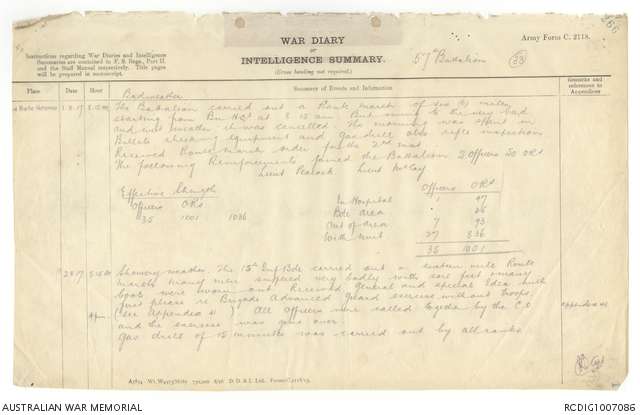 WAR DIARY
or
INTELLIGENCE SUMMARY.
(Erase heading not required.)
Instructions regarding War Diaries and Intelligence
Summaries are contained in F. S. Regs., Part II.
and the Staff Manual respectively. Title pages
will be prepared in manuscript.
Army Form C. 2118.
57th Battalion
33
266
Place Date Hour Summary of Events and Information Remarks and references to Appendices
Bad weather
1.8.17 8.15 am The Battalion carried out a Route march of six (6) miles
starting from Bn HQrs at 8.15 am. But owing to the very bad
and wet weather it was cancelled. The morning was spent in
Billets checking equipment and gas drill also rifle inspection
Received Route march order for the 2nd inst.
The following Reinforcements joined the Battalion 2 Officers 30 ORs
Lieut Peacock Lieut McCay
Effective Strength
Officers ORs
35 1001 1036
Officers ORs
In Hospital 1 47
Bde area 25
Out of area 7 93
With unit 27 836
35 1001
2.8.17 8.15 am Showery weather. The 15th Inf Bde carried out a sixteen mile Route
march many men suffered very badly with sore feet & many
boots were worn out. Received General and special Idea with
first phase re Brigade Advanced Guard exercise without troops
4 pm (See Appendix 41) All Officers were called together by the C.O Appendix 41
and the exercise was gone over.
Gas drill of 15 minutes was carried out by all ranks
D. D. & L. Ltd.
AUSTRALIAN WAR MEMORIAL
RCDIG1007086